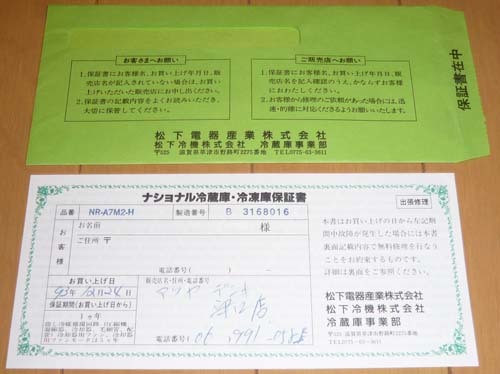 保証書在中
お客さまへお願い
1.保証書にお客様名、お買い上げ年月日、販
売店名が記入されていない場合は、お買い
上げいただいた販売店にお申し出ください。
2.保証書の記載内容をよくお読みいただき、
大切に保管してください。
ご販売店へお願い
1.お客様名、お買い上げ年月日、販売
店名を記入確認のうえ、かならずお客様
におわたしください。
2.お客様から修理のご依頼があった場合には、迅
速・的確に対応くださるようお願いいたします。
松下電器産業株式会社
松下冷機株式会社 冷蔵庫事業部
〒525 滋賀県草津市野路町2275番地 TEL.0775-63-3611
ナショナル冷蔵庫・冷凍庫保証書
出張修理
品番 NR-A7M2-H 製造番号 B 3168016
お客様
お名前 様
ご住所 〒
電話番号( )
お買い上げ日
93年12月24日
保証期間(お買い上げ日から)
1ヶ年
販売店名・住所・電話番号
電話番号( )
本書はお買い上げの日から左記期
間中故障が発生した場合には本書
裏面記載内容で無料修理を行なう
ことをお約束するものです。
詳細は裏面をご参照ください。
松下電器産業株式会社
松下冷機株式会社
冷蔵庫事業部
〒525 滋賀県草津市野路町2275番地
TEL.0775-63-3611